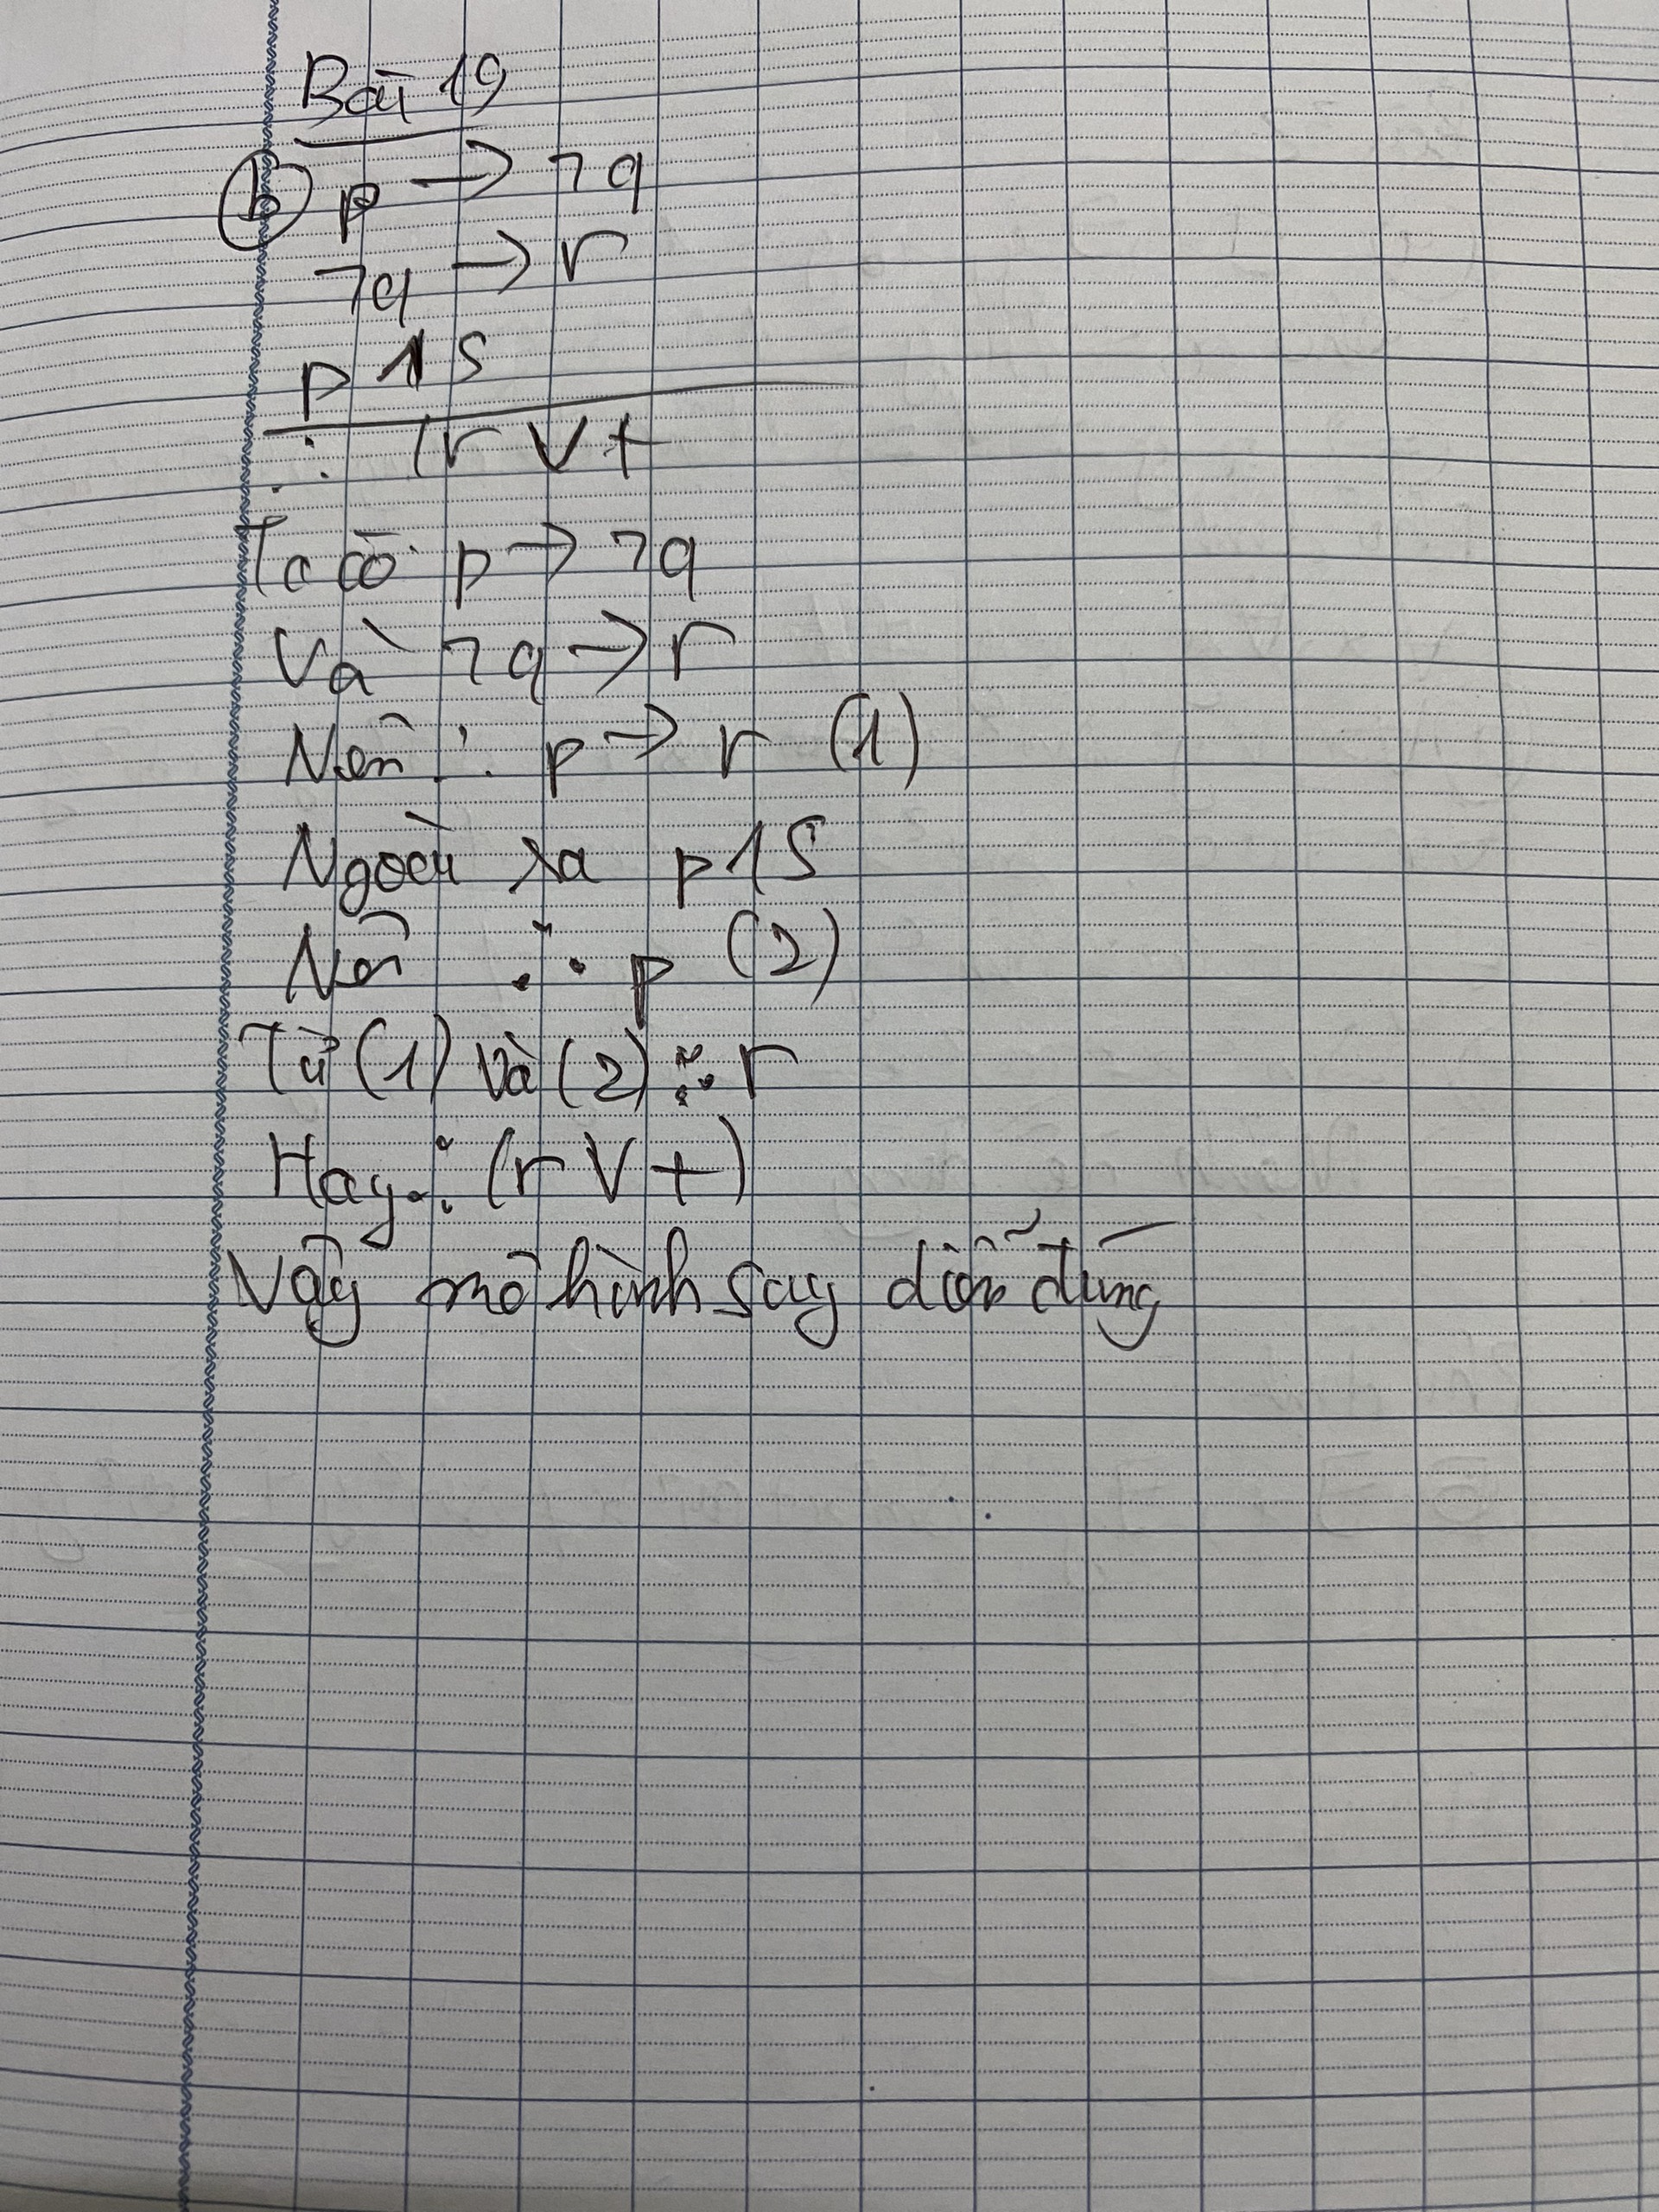 Bài 19
(b) p → ¬q
¬q → r
p ∧ s
∴ (r ∨ t
Ta có p → ¬q
Và ¬q → r
Nên ∴ p → r (1)
Ngoài ra p ∧ s
Nên ∴ p (2)
Từ (1) và (2) ∴ r
Hay ∴ (r ∨ t)
Vậy mô hình suy diễn đúng